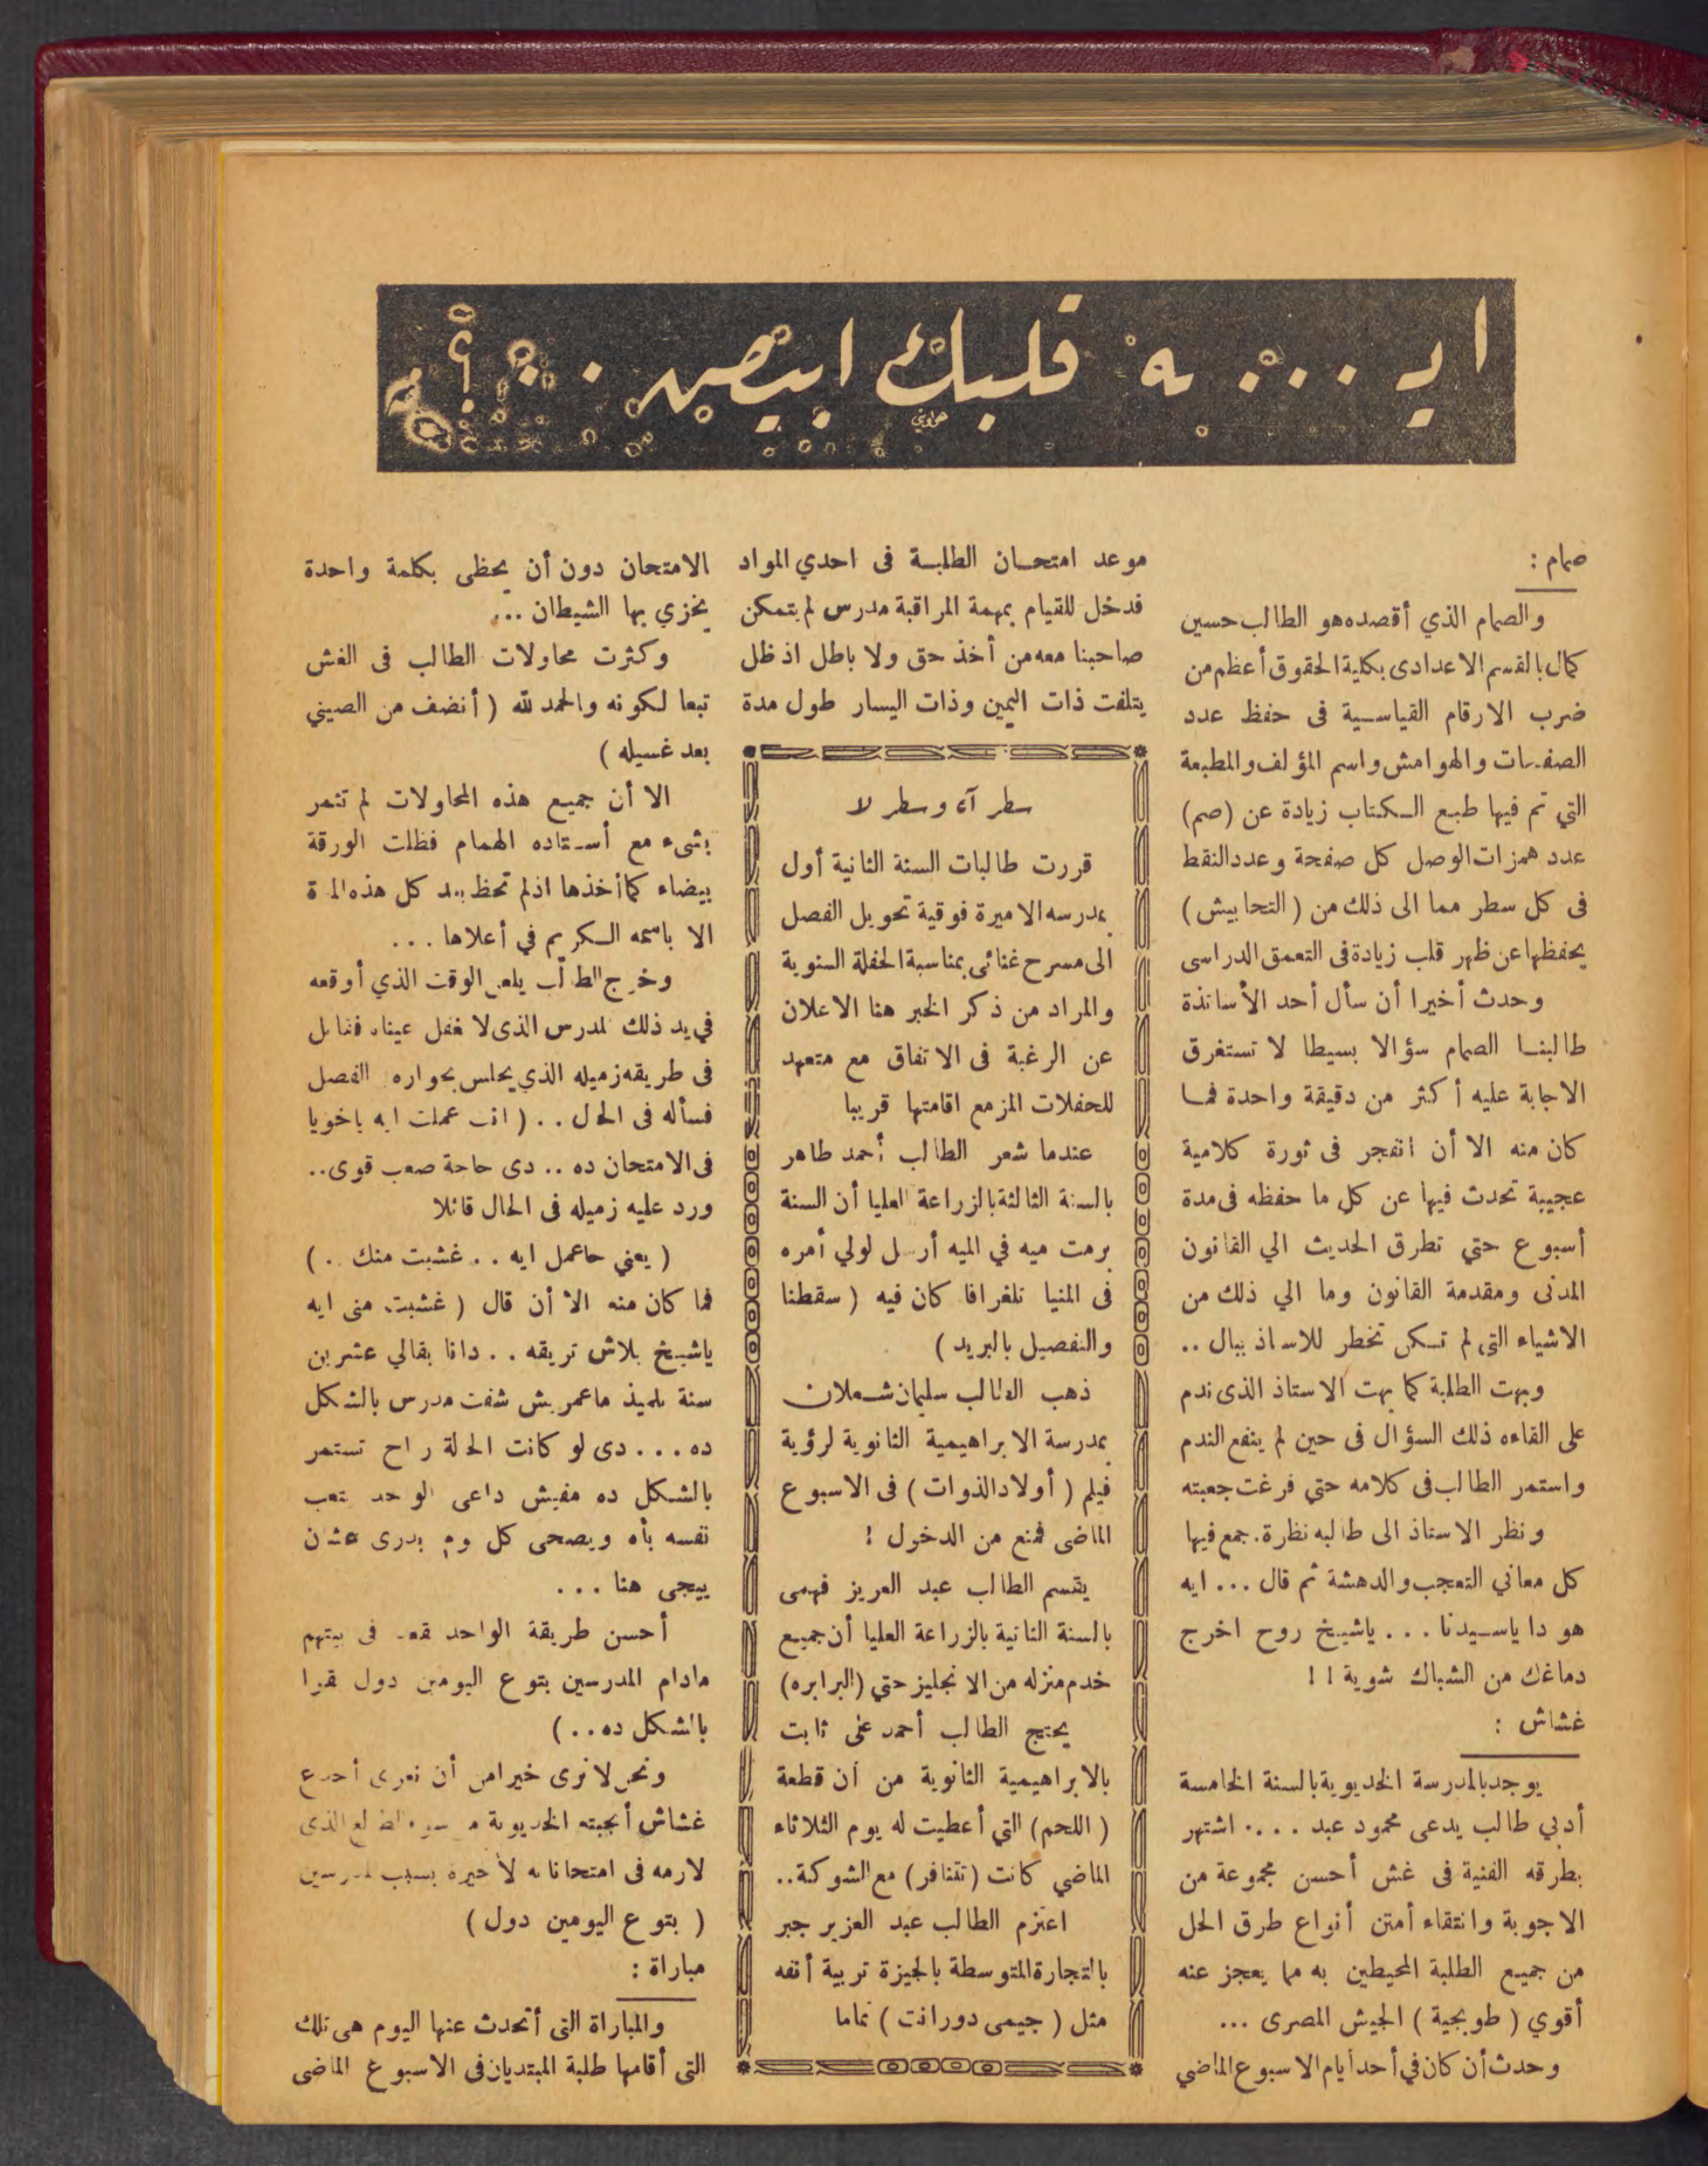 ايـ ... ـه قلبك ابيض .. ؟
صمام :
والصمام الذي أقصده هو الطالب حسين
كمال بالقسم الاعدادى بكلية الحقوق أعظم من
ضرب الارقام القياسية فى حفظ عدد
الصفحات والهوامش واسم المؤلف والمطبعة
التي تم فيها طبع الكتاب زيادة عن (صم)
عدد همزات الوصل كل صفحة وعدد النقط
فى كل سطر مما الى ذلك من ( التحابيش )
يحفظها عن ظهر قلب زيادة فى التعمق الدراسى
وحدث أخيرا أن سأل أحد الأساتذة
طالبنا الصمام سؤالا بسيطا لا تستغرق
الاجابة عليه أكثر من دقيقة واحدة فما
كان منه الا أن انفجر فى ثورة كلامية
عجيبة تحدث فيها عن كل ما حفظه فى مدة
أسبوع حتي تطرق الحديث الي القانون
المدنى ومقدمة القانون وما الي ذلك من
الاشياء التى لم تكن تخطر للاستاذ ببال ..
وبهت الطلبة كما بهت الاستاذ الذى ندم
على القاءه ذلك السؤال فى حين لم ينفع الندم
واستمر الطالب فى كلامه حتي فرغت جعبته
ونظر الاستاذ الى طالبه نظرة . جمع فيها
كل معاني التعجب والدهشة ثم قال ... ايه
هو دا ياسيدنا ... ياشيخ روح اخرج
دماغك من الشباك شوية ! !
غشاش :
يوجد بالمدرسة الخديوية بالسنة الخامسة
أدبي طالب يدعى محمود عبد .... اشتهر
بطرقه الفنية فى غش أحسن مجموعة من
الاجوبة وانتقاء أمتن أنواع طرق الحل
من جميع الطلبة المحيطين به مما يعجز عنه
أقوي ( طوبجية ) الجيش المصرى ...
وحدث أن كان في أحد أيام الاسبوع الماضي
موعد امتحان الطلبة فى احدي المواد
فدخل للقيام بمهمة المراقبة مدرس لم يتمكن
صاحبنا معه من أخذ حق ولا باطل اذ ظل
يتلفت ذات اليمين وذات اليسار طول مدة
الامتحان دون أن يحظى بكلمة واحدة
يخزي بها الشيطان ...
وكثرت محاولات الطالب فى الغش
تبعا لكونه والحمد لله ( أنضف من الصيني
بعد غسيله )
الا أن جميع هذه المحاولات لم تثمر
بشىء مع أستاذه الهمام فظلت الورقة
بيضاء كما أخذها اذ لم تحظ بعد كل هذه المدة
الا باسمه الكريم في أعلاها ...
وخرج الطالب يلعن الوقت الذي أوقعه
في يد ذلك المدرس الذى لا تغفل عيناه فقابل
فى طريقه زميله الذي يجلس بجواره الفصل
فسأله فى الحال .. ( انت عملت ايه ياخويا
فى الامتحان ده .. دى حاجة صعب قوى ..
ورد عليه زميله فى الحال قائلا
( يعني حاعمل ايه .. غشيت منك .. )
فما كان منه الا أن قال ( غشيت منى ايه
ياشيخ بلاش تريقه .. دانا بقالي عشرين
سنة تلميذ ماعمريش شفت مدرس بالشكل
ده ... دى لو كانت الحالة راح تستمر
بالشكل ده مفيش داعى الواحد يتعب
نفسه بأه ويصحى كل يوم بدرى عشان
ييجى هنا ...
أحسن طريقة الواحد يقعد فى بيتهم
مادام المدرسين بتوع اليومين دول بقوا
بالشكل ده .. )
ونحن لا نرى خيرا من أن نعزى أجدع
غشاش أنجبته الخديوية الذى
لازمه فى امتحاناته الأخيرة بسبب المدرسين
( بتوع اليومين دول )
مباراة :
والمباراة التى أتحدث عنها اليوم هى تلك
التى أقامها طلبة المبتديان فى الاسبوع الماضى
سطر آه وسطر لا
قررت طالبات السنة الثانية أول
بمدرسه الاميرة فوقية تحويل الفصل
الى مسرح غنائى بمناسبة الحفلة السنوية
والمراد من ذكر الخبر هنا الاعلان
عن الرغبة فى الاتفاق مع متعهد
للحفلات المزمع اقامتها قريبا
عندما شعر الطالب أحمد طاهر
بالسنة الثالثة بالزراعة العليا أن السنة
برمت ميه في الميه أرسل لولي أمره
فى المنيا تلغرافا كان فيه ( سقطنا
والتفصيل بالبريد )
ذهب الطالب سليمان شعلان
بمدرسة الابراهيمية الثانوية لرؤية
فيلم ( أولاد الذوات ) فى الاسبوع
الماضى فمنع من الدخول !
يقسم الطالب عبد العزيز فهمى
بالسنة الثانية بالزراعة العليا أن جميع
خدم منزله من الانجليز حتي (البرابره)
يحتج الطالب أحمد على ثابت
بالابراهيمية الثانوية من أن قطعة
( اللحم ) التي أعطيت له يوم الثلاثاء
الماضي كانت ( تتنافر ) مع الشوكة ..
اعتزم الطالب عبد العزيز جبر
بالتجارة المتوسطة بالجيزة تربية أنفه
مثل ( جيمى دورانت ) تماما